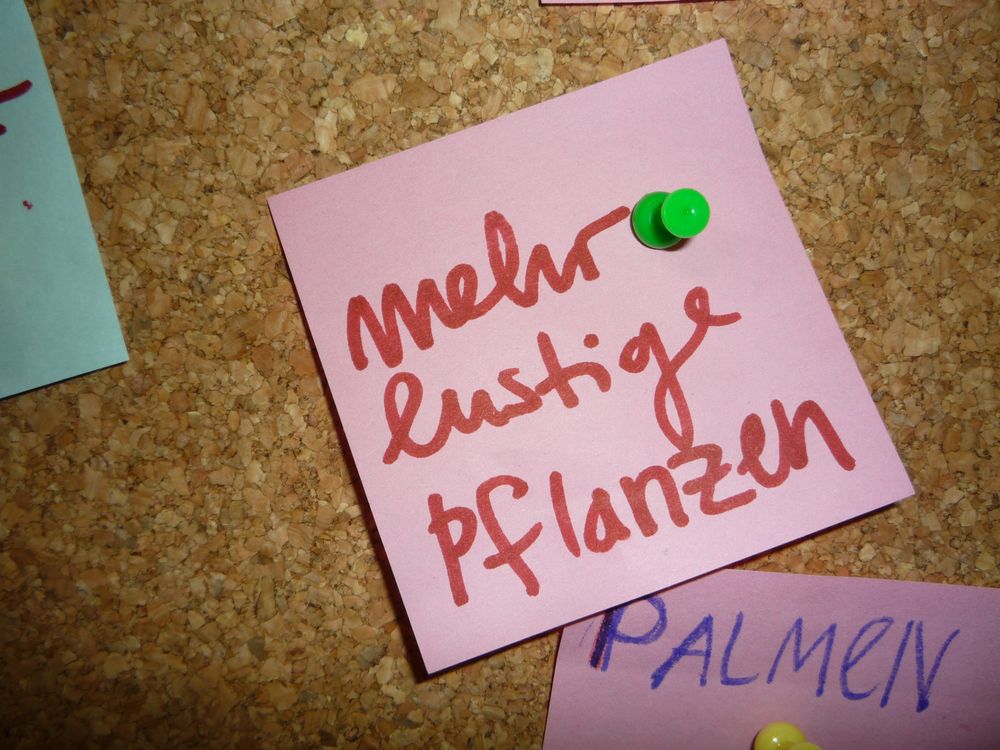 mehr
lustige
pflanzen
PALMEN